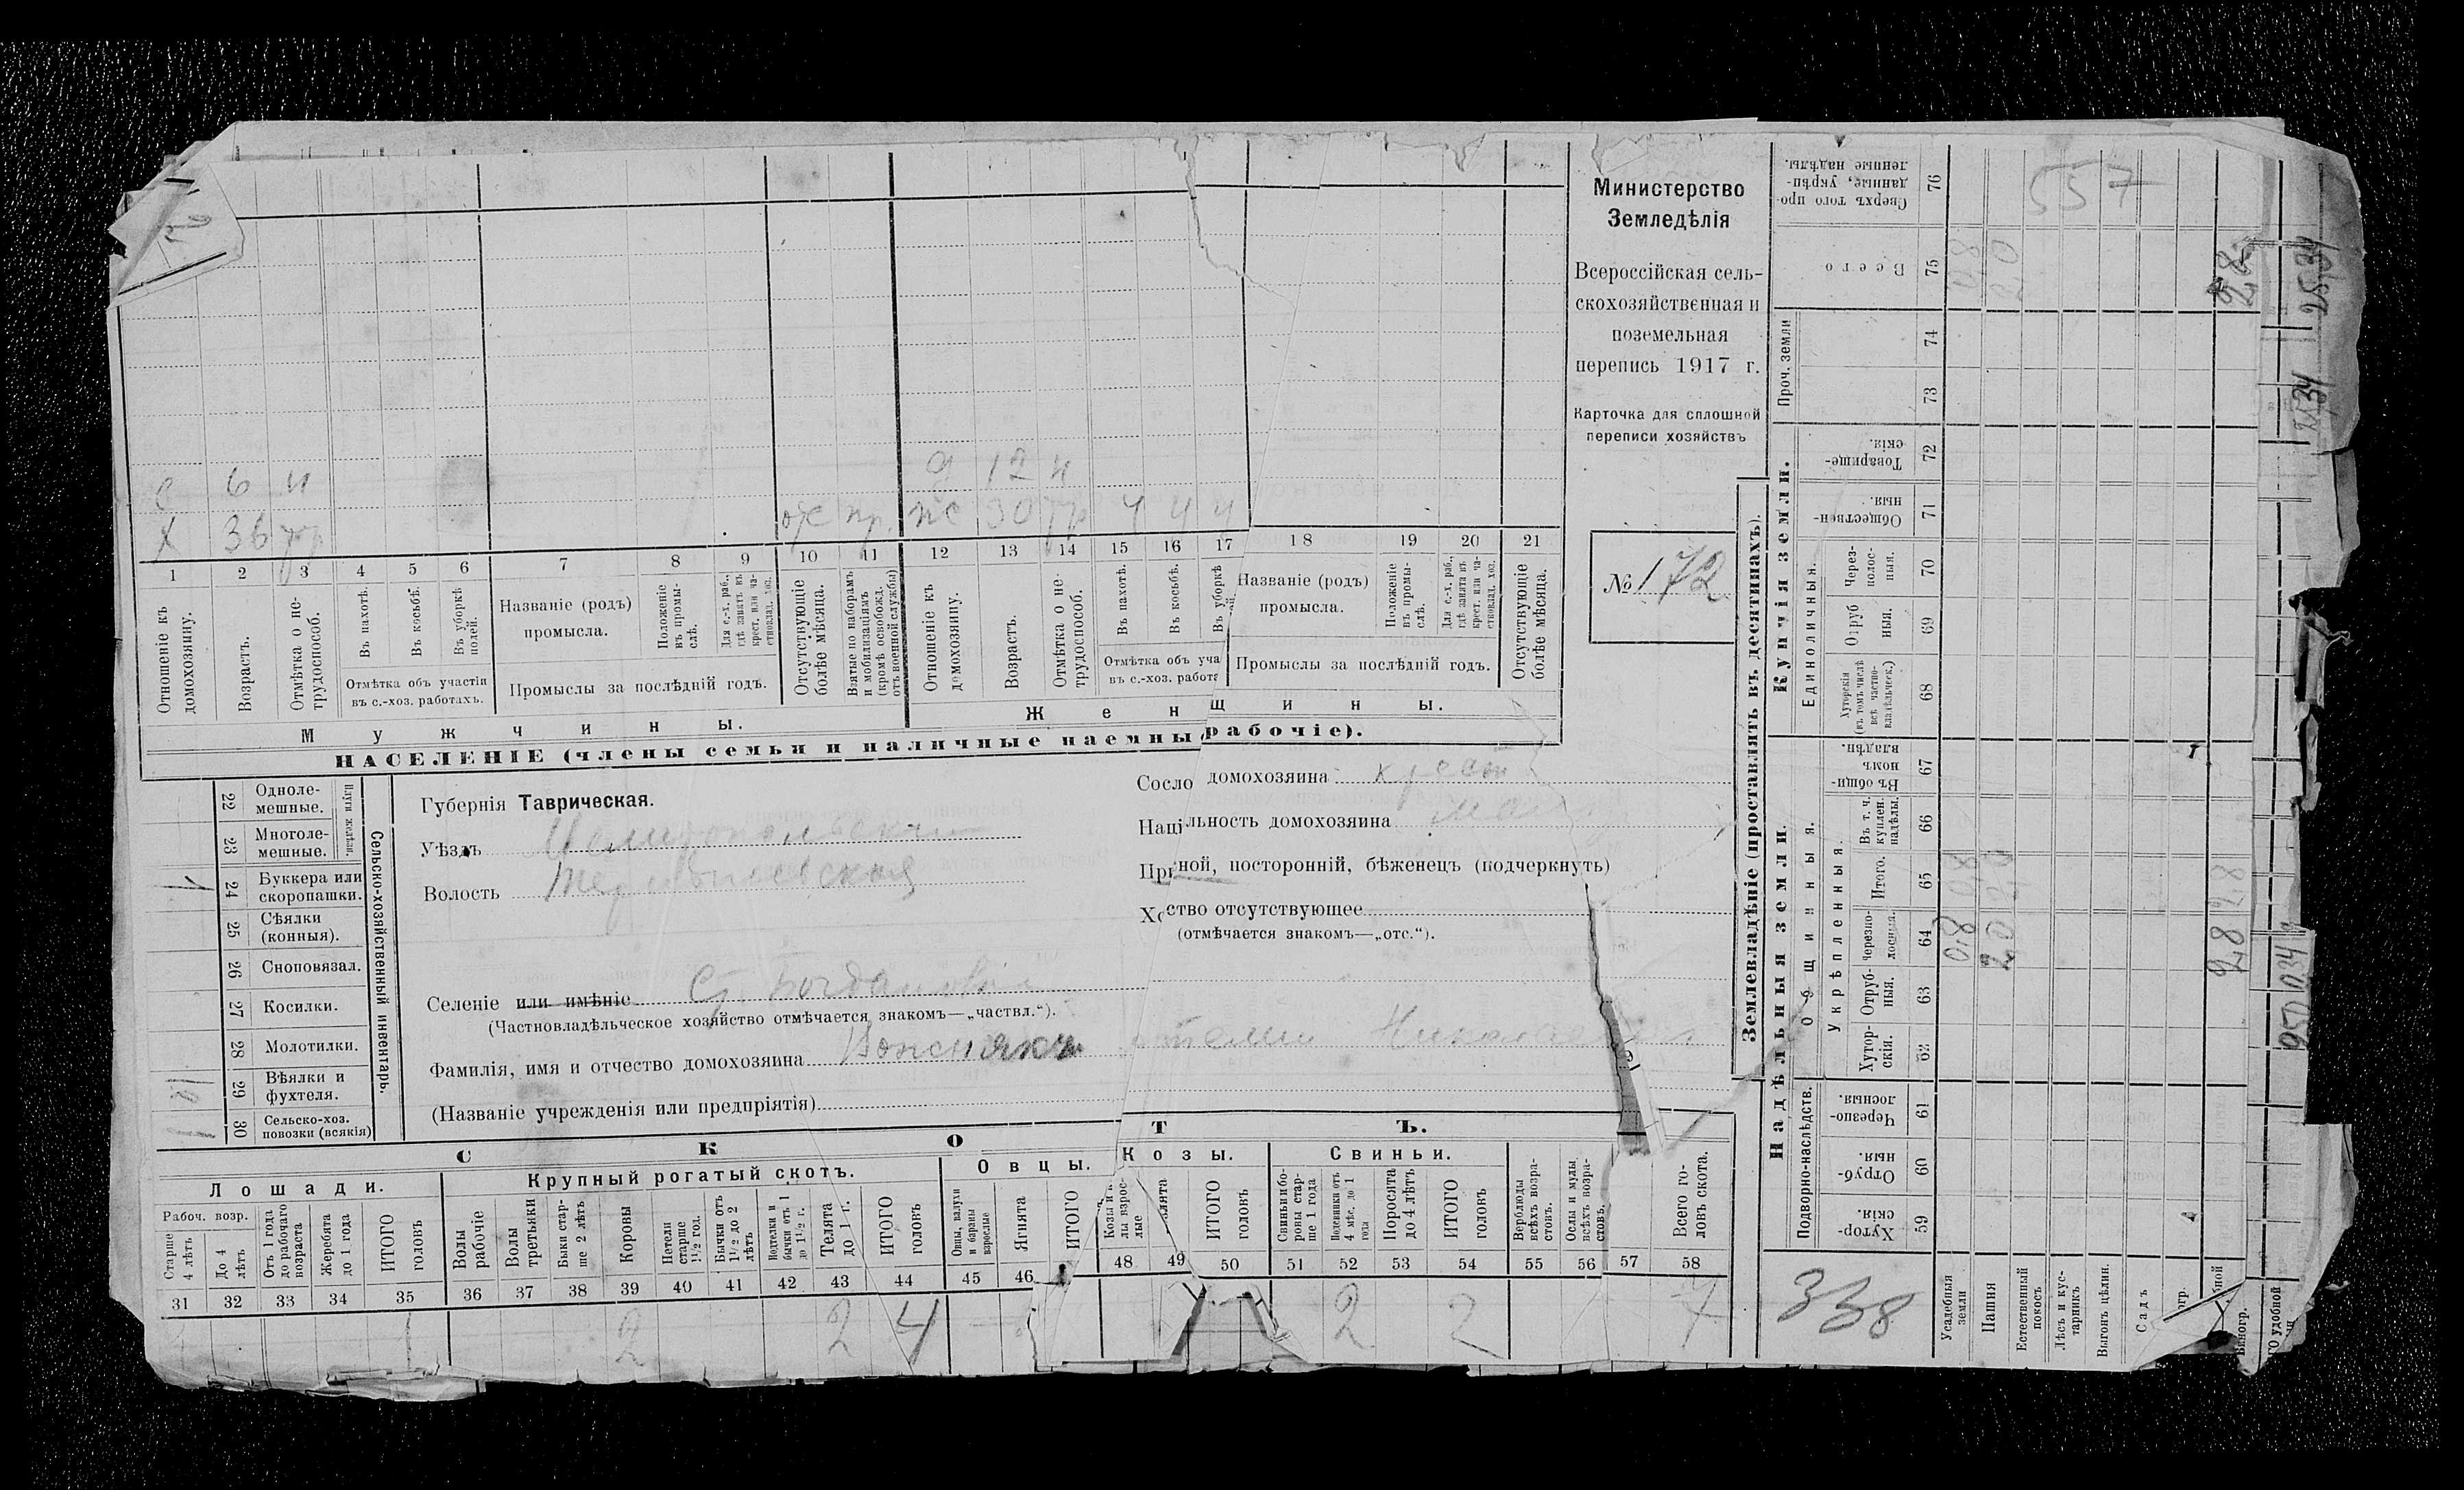 Министерство
Земледѣлія
Всероссійская сель-
скохозяйственная и
поземельная
перепись 1917 г.
Карточка для сплошной
переписи хозяйствъ
№ 172
с 6 н
х 36
д 12 н
30
1 2 3 4 5 6 7 8 9 10 11 12 13 14 15 16 17 18 19 20 21
Отношеніе къ домохозяину.
Возрастъ.
Отмѣтка о не-трудоспособ.
Въ пахотѣ.
Въ косьбѣ.
Въ уборкѣ полей.
Отмѣтка объ участіи
въ с.-хоз. работахъ.
Названіе (родъ)
промысла.
Положеніе въ промы-слѣ.
Для с.-х. раб., гдѣ занятъ въ крест. или ча-стновлад. хоз.
Промыслы за послѣдній годъ.
Отсутствующіе болѣе мѣсяца.
Взятые по наборамъ и мобилизаціямъ (кромѣ освобожд. отъ военной службы)
Отношеніе къ домохозяину.
Возрастъ.
Отмѣтка о не-трудоспособ.
Въ пахотѣ.
Въ косьбѣ.
Въ уборкѣ
Отмѣтка объ уча
въ с.-хоз. работа
Названіе (родъ)
промысла.
Положеніе въ промы-слѣ.
Для с.-х. раб., гдѣ занята въ крест. или ча-стновлад. хоз.
Промыслы за послѣдній годъ.
Отсутствующіе болѣе мѣсяца.
Мужчины.
Женщины.
НАСЕЛЕНІЕ (члены семьи и наличные наемны рабочіе).
22 Одноле-мешные.
23 Многоле-мешные.
Плуги желѣзн.
24 Буккера или скоропашки. 1
25 Сѣялки (конныя).
26 Сноповязал.
27 Косилки.
28 Молотилки.
29 Вѣялки и фухтеля.
30 Сельско-хоз. повозки (всякія) 1
Сельско-хозяйственный инвентарь.
Губернія Таврическая.
Уѣздъ Мелитопольскій
Волость
Селеніе или имѣніе Ст. Богдановка
(Частновладѣльческое хозяйство отмѣчается знакомъ—„частвл.“).
Фамилія, имя и отчество домохозяина
(Названіе учрежденія или предпріятія)
Сосло домохозяина крест
Наці льность домохозяина
При ной, посторонній, бѣженецъ (подчеркнуть)
Хо ство отсутствующее
(отмѣчается знакомъ—„отс.“).
СКОТЪ.
Лошади.
Рабоч. возр.
Старше 4 лѣтъ
До 4 лѣтъ
Отъ 1 года до рабочаго возраста
Жеребята до 1 года
ИТОГО головъ
Крупный рогатый скотъ.
Волы рабочіе
Волы третьяки
Быки стар-ше 2 лѣтъ
Коровы
Нетели старше 1½ год.
Бычки отъ 1½ до 2 лѣтъ
Подтелки и бычки отъ 1 до 1½ г.
Телята до 1 г.
ИТОГО головъ
Овцы.
Овцы, валухи и бараны взрослые
Ягнята
ИТОГО
Козы.
Козы и лы взрос-лые
лята
ИТОГО головъ
Свиньи.
Свиньи и бо-ровы стар-ше 1 года
Подсвинки отъ 4 мѣс. до 1 года
Поросята до 4 лѣтъ
ИТОГО головъ
Верблюды всѣхъ возра-стовъ.
Ослы и мулы всѣхъ возра-стовъ.
Всего го-ловъ скота.
31 32 33 34 35 36 37 38 39 40 41 42 43 44 45 46 48 49 50 51 52 53 54 55 56 57 58
2 2 4 2 2 7
Землевладѣніе (проставлять въ десятинахъ).
Надѣльныя земли.
Купчія земли.
Проч. земли
Подворно-наслѣдств.
Общинныя.
Укрѣпленныя.
Единоличныя.
Хутор-скія. 59
Отруб-ныя. 60
Черезпо-лосныя 61
Хутор-скія. 62
Отруб-ныя. 63
Черезпо-лосныя. 64
Итого. 65
Въ т. ч. куплен. надѣлы. 66
Въ общи-номъ владѣн. 67
Хуторскія (въ томъ числѣ всѣ частно-владѣльческ.) 68
Отруб ныя. 69
Через-полос-ныя. 70
Обществен-ныя. 71
Товарище-скія. 72
73
74
Всего 75
Сверхъ того про-данные, укрѣп-ленные надѣлы. 76
Усадебныя земли 0,8 0,8 0,8
Пашня 2,0 2,0 2,0
Естественный покосъ
Лѣсъ и кус-тарникъ
Выгонъ цѣлин.
Садъ
огр.
ной
Виногр.
ГО удобной
2,8 2,8 2,8
557
338